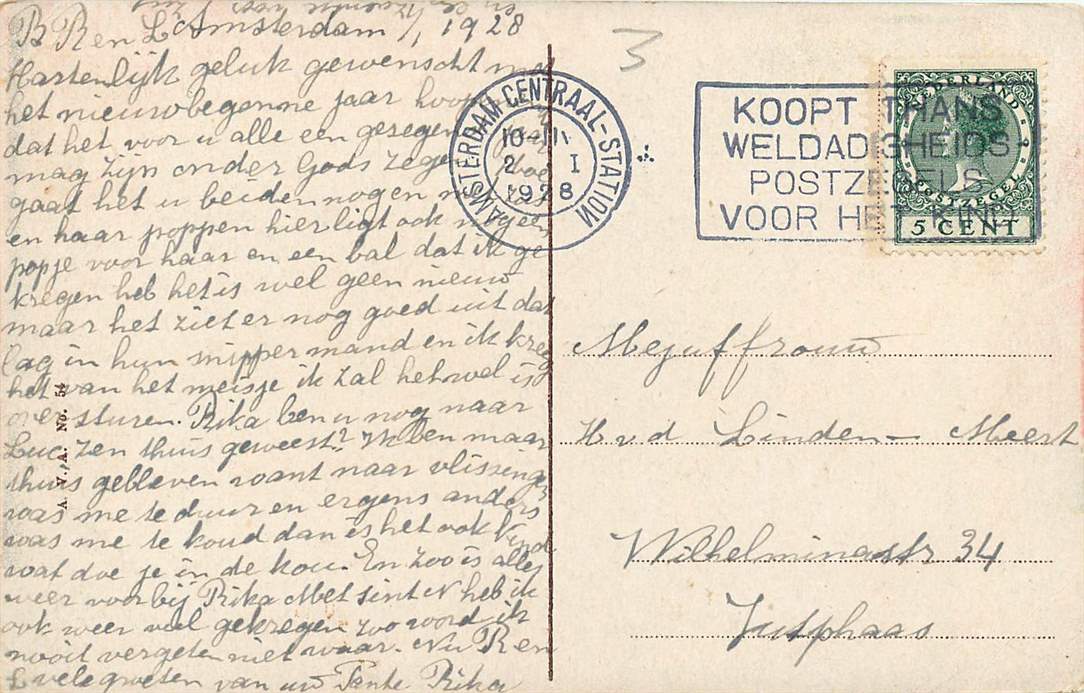 B R en L Amsterdam 1/1 1928
Hartenlijk geluk gewenscht met
het nieuwbegonne jaar
dat het voor u alle een gezegen
mag zijn onder Gods zegen Hoe
gaat het u beiden nogen
en haar poppen hier ligt ook nog een
popje voor haar en een bal dat ik ge
kregen heb het is wel geen nieuw
maar het ziet er nog goed uit dat
lag in hun snippermand en ik kreeg
het van het meisje ik zal het wel is
over sturen. Rika ben u nog naar
Luc. Zen thuis geweest? Ik ben maar
thuis gebleven want naar vlissinge
was me te duur en ergens anders
was me te koud dan is het ook
wat doe je in de kou. En zoo is alles
weer voorbij Rika Met sint N heb ik
ook weer veel gekregen zoo word ik
nooit vergeten niet waar. Nu R en
L vele groeten van uw Tante Rika
A. V. A. No. 54
3
AMSTERDAM CENTRAAL-STATION
2 I
1928
KOOPT THANS
WELDADIGHEIDS-
POSTZEGELS
VOOR HET KIND
NEDERLAND
POSTZEGEL
5 CENT
Mejuffrouw
H v. d Linden - Meert
Wilhelminastr 34
Jutphaas